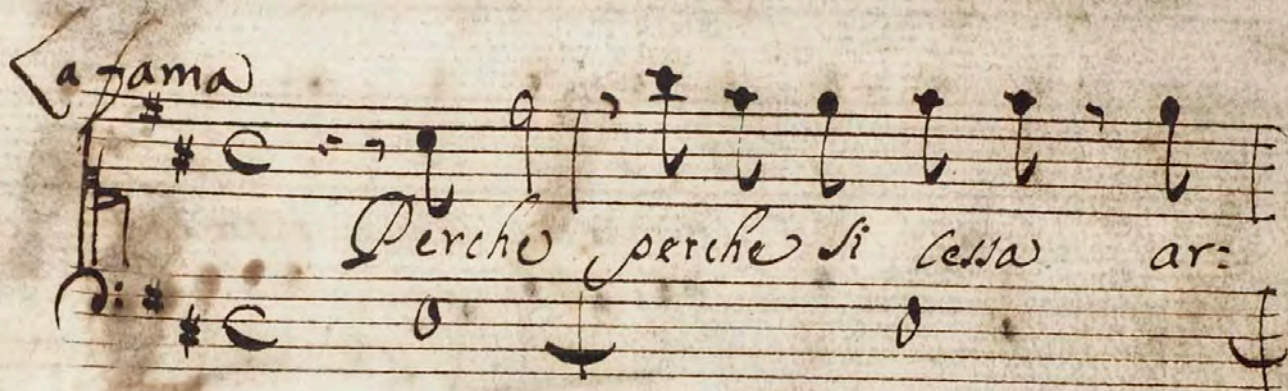 La fama
Perche perche si cessa ar=